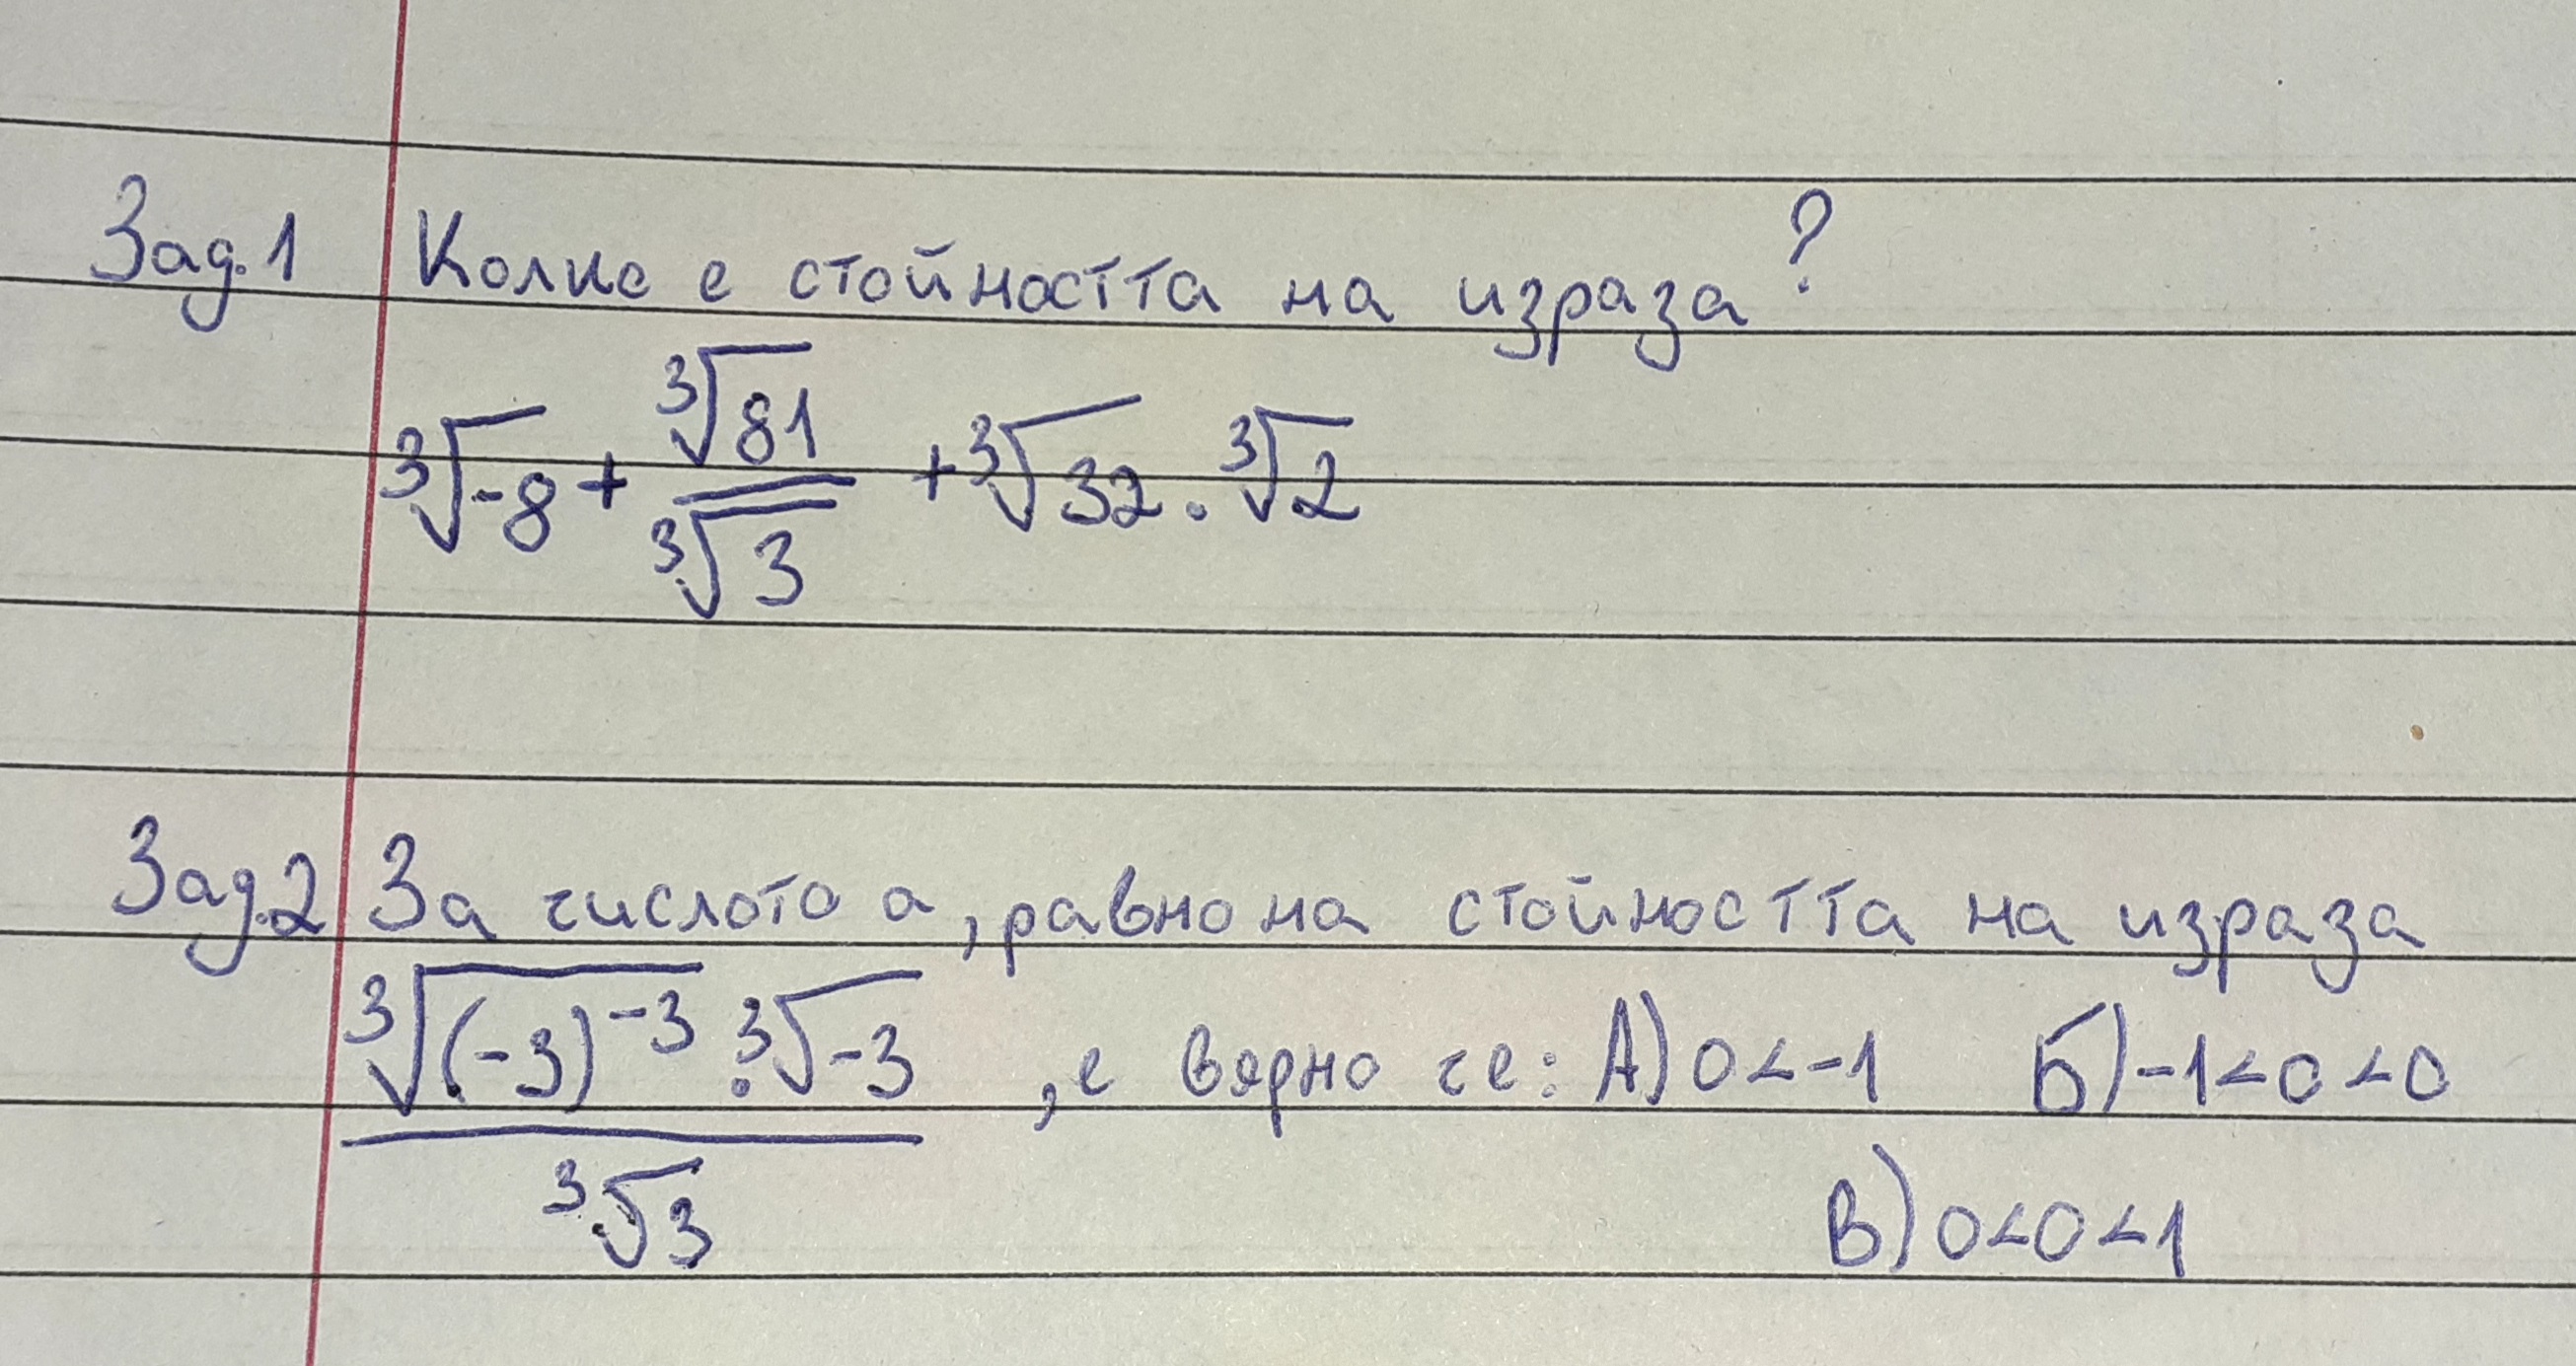 Зад.1 Колко е стойността на израза?
∛-8 + ∛81/∛3 + ∛32 . ∛2
Зад.2 За числото а, равно на стойността на израза
∛(-3)⁻³ . ∛-3 / ∛3 , е вярно че: А) а<-1 Б) -1<а<0
В) 0<а<1